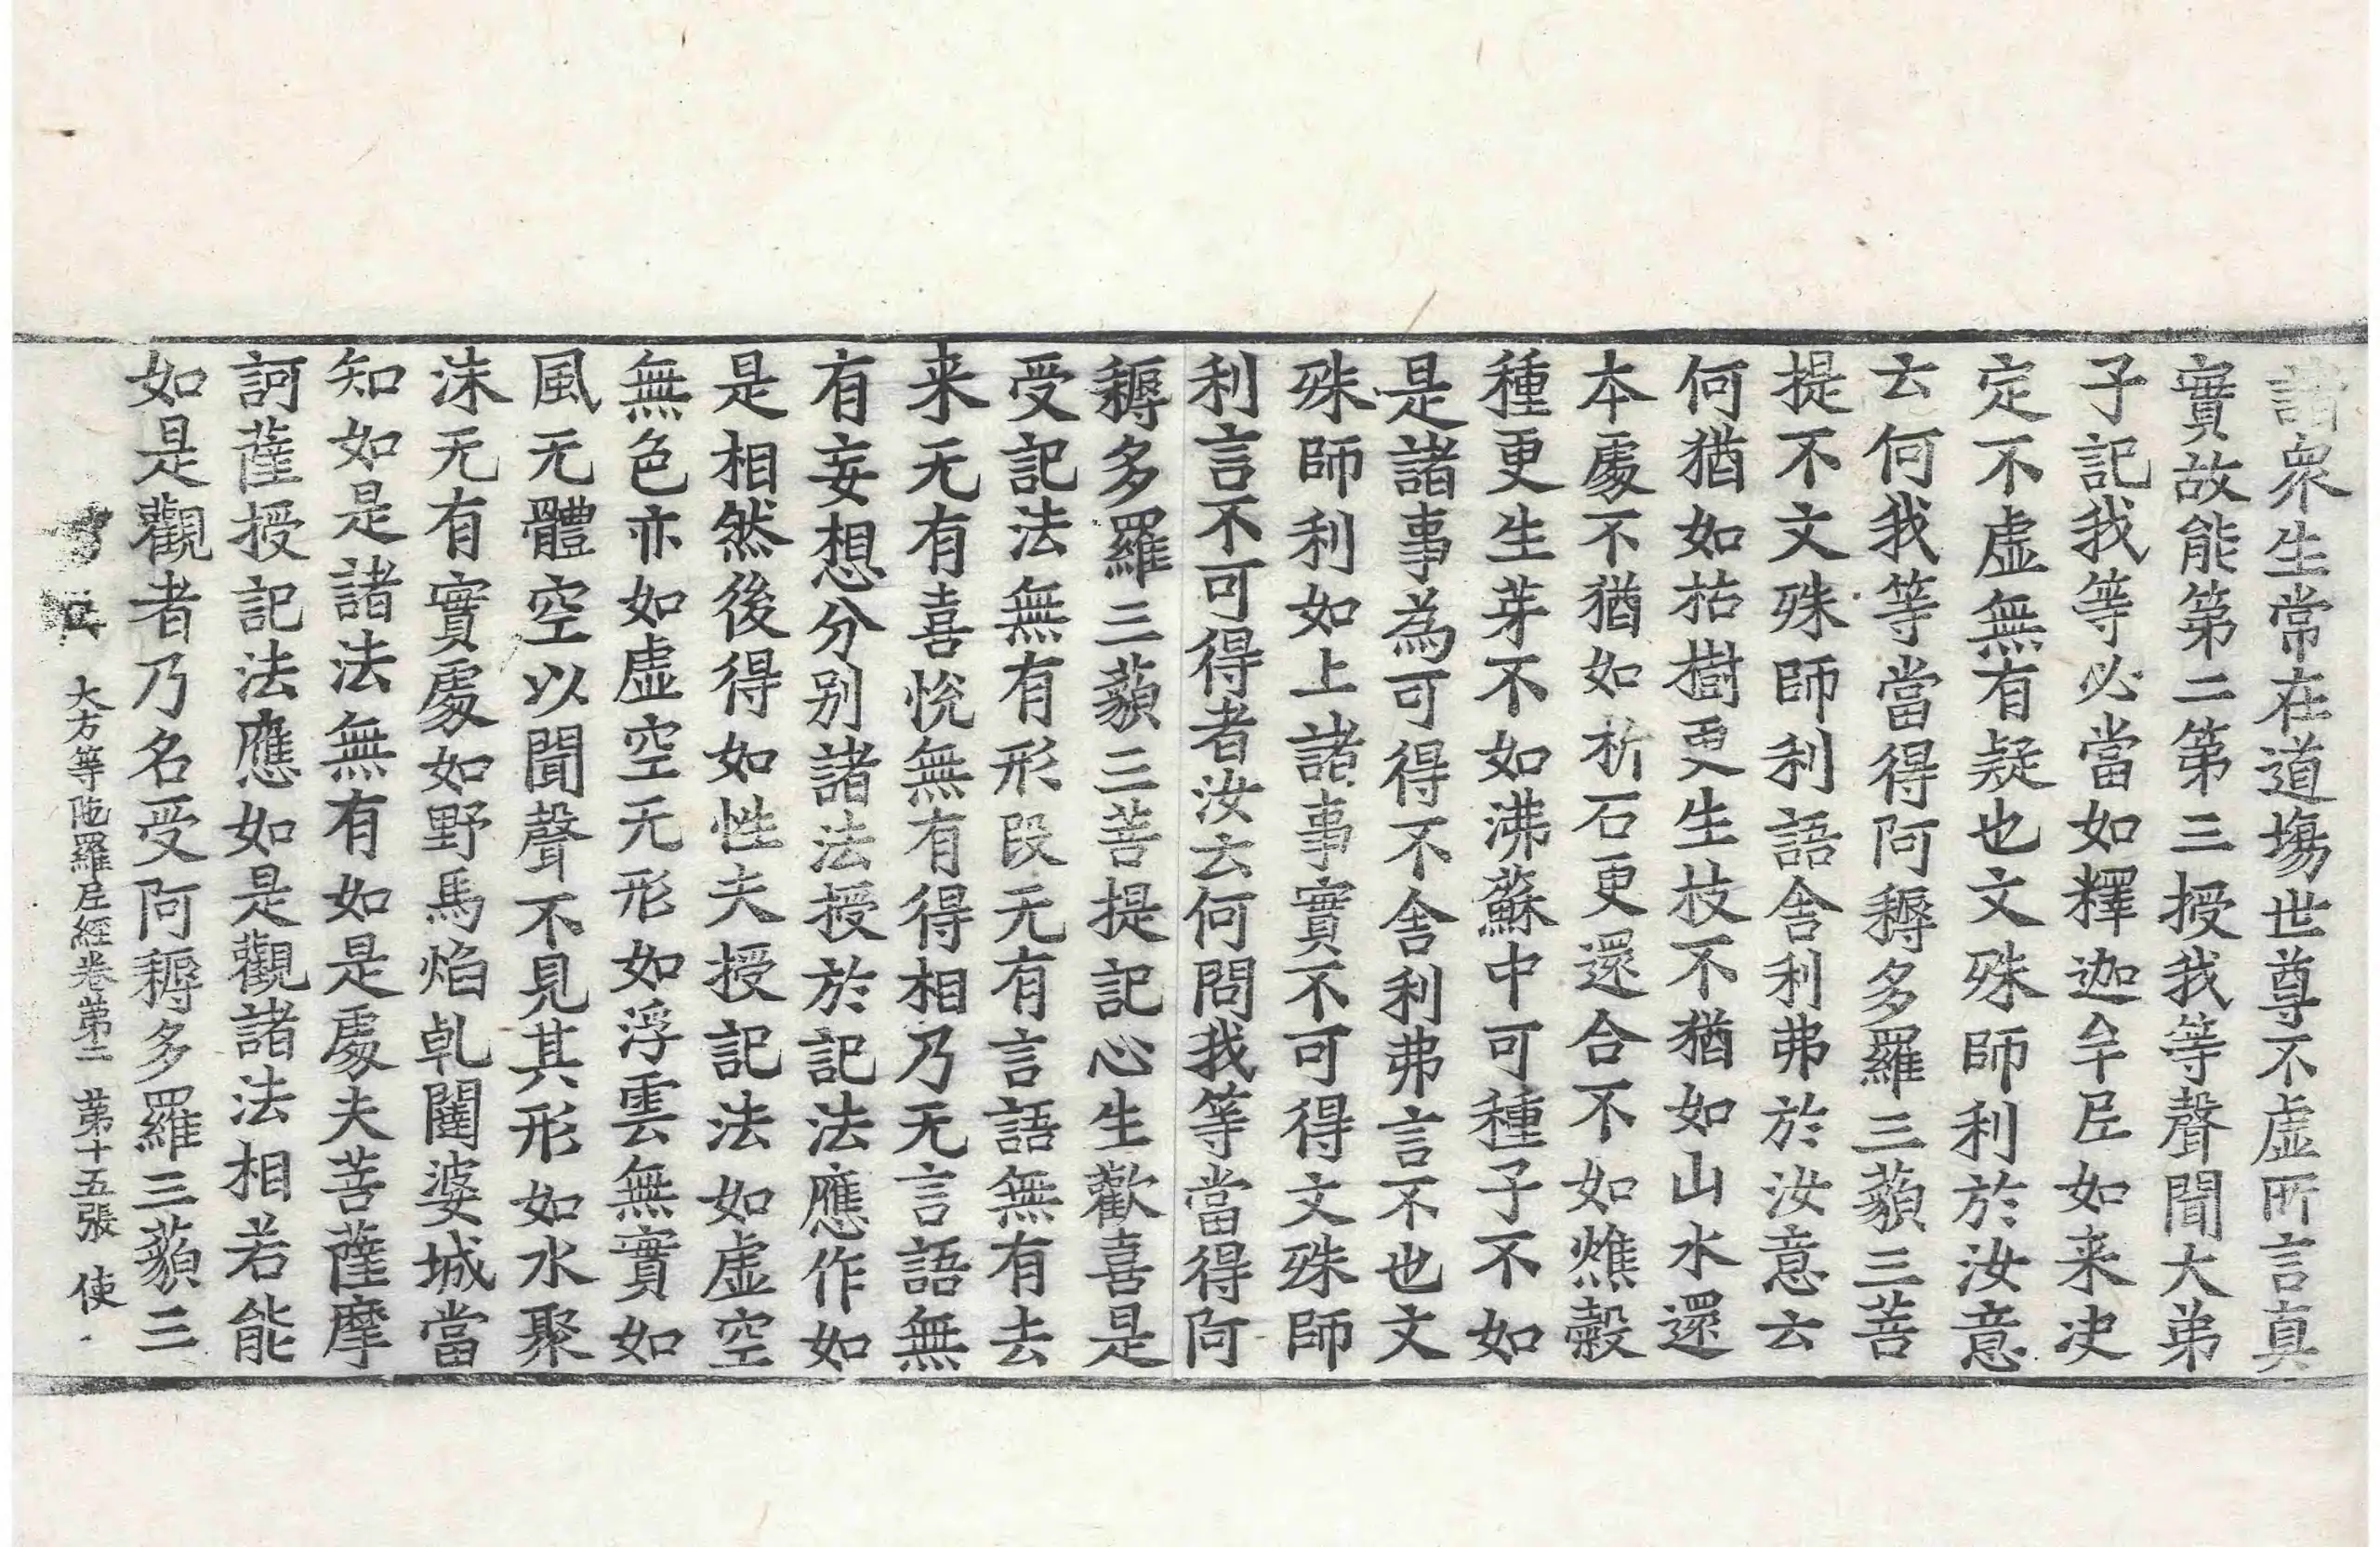 諸衆生常在道場世尊不虛所言真
實故能第二第三授我等聲聞大弟
子記我等必當如釋迦牟尼如来决
定不虛無有疑也文殊師利於汝意
云何我等當得阿耨多羅三藐三菩
提不文殊師利語舍利弗於汝意云
何猶如枯樹更生枝不猶如山水還
本處不猶如析石更還合不如燋穀
種更生芽不如沸蘇中可種子不如
是諸事為可得不舍利弗言不也文
殊師利如上諸事實不可得文殊師
利言不可得者汝云何問我等當得阿
耨多羅三藐三菩提記心生歡喜是
受記法無有形段无有言語無有去
来无有喜悅無有得相乃无言語無
有妄想分別諸法授於記法應作如
是相然後得如性夫授記法如虛空
無色亦如虛空无形如浮雲無實如
風无體空以聞聲不見其形如水聚
沫无有實處如野馬焰乹闥婆城當
知如是諸法無有如是處夫菩薩摩
訶薩授記法應如是觀諸法相若能
如是觀者乃名受阿耨多羅三藐三
大方等陁羅尼經卷第二 第十五張 使